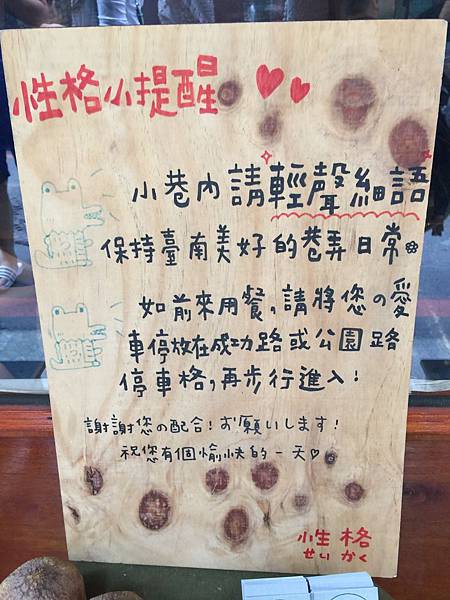 性格小提醒
小巷內請輕聲細語
保持臺南美好的巷弄日常
如前來用餐,請將您の愛
車停放在成功路或公園路
停車格,再步行進入!
謝謝您の配合!お願いします!
祝您有個愉快的一天♡
性格
せいかく